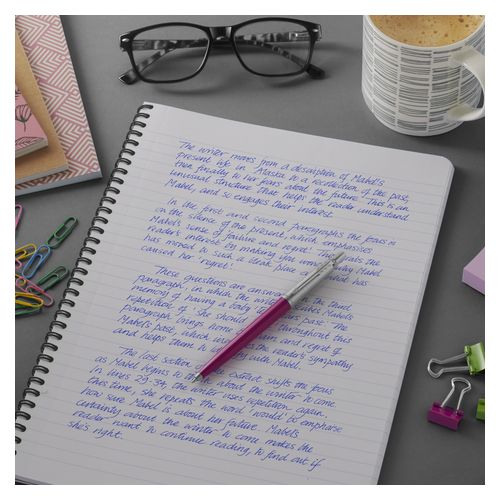 The writer moves from a description of Mabel's
present life in Alaska to a recollection of the past,
then finally to her fears about the future. This is an
unusual structure that helps the reader understand
Mabel, and so engages their interest.
In the first and second paragraphs the focus is
on the silence of the present, which emphasises
Mabel's sense of failure and regret. The
reader's interest by making you why Mabel
has moved to such a bleak place has
caused her 'regret'.
These questions are in the third
paragraph, in which the Mabel's
memory of having a baby past. The
repetition of 'she should throughout this
paragraph brings home and regret of
Mabel's past, which the reader's sympathy
and helps them to with Mabel.
The last section extract shifts the focus
as Mabel begins to about the winter to come
In lines 29-34, the writer uses repetition again.
this time, she repeats the word 'would' to emphasise
how sure Mabel is about her future. Mabel's
certainty about the winter to come makes the
reader want to continue reading, to find out if
she's right.